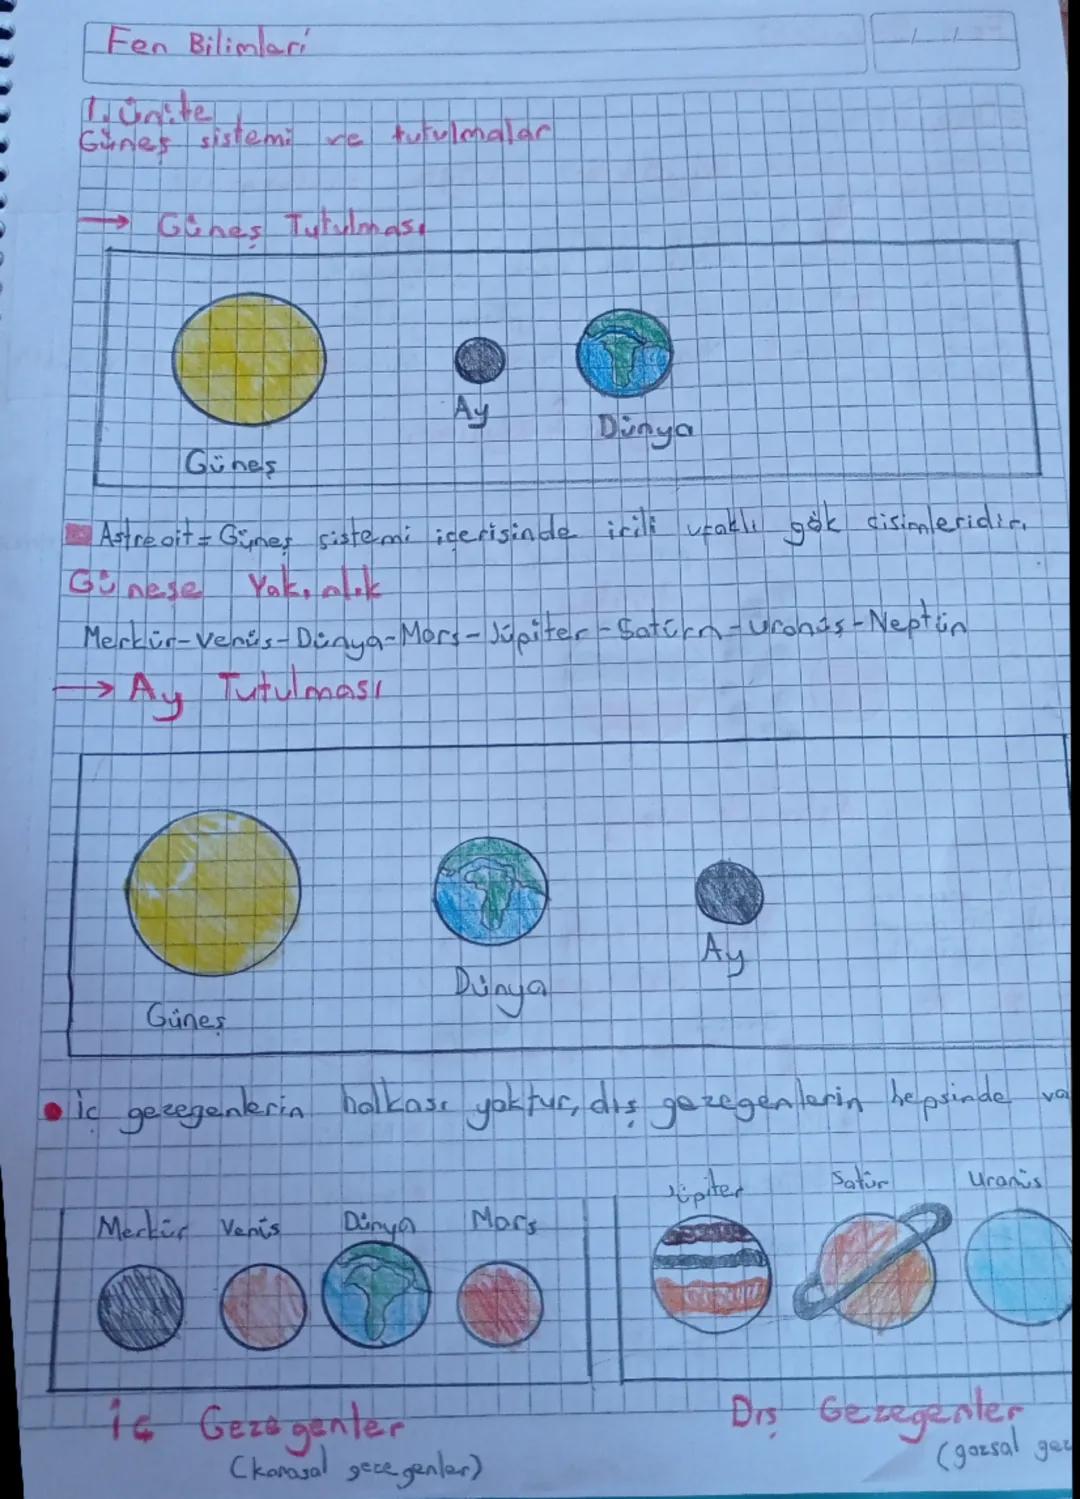 Fen Bilimleri
1. Ünite
Güneş sistemi ve tutulmalar
→ Güneş Tutulması
Güneş
Ay
Dünya
Astreoit = Güneş sistemi içerisinde irili ufaklı gök cisimleridir.
Güneşe Yakınlık
Merkür-Venüs-Dünya-Mars-Jüpiter-Satürn-Uranüs-Neptün
→ Ay Tutulması
Güneş
Dünya
Ay
• İç gezegenlerin halkası yoktur, dış gezegenlerin hepsinde va
Merkür Venüs Dünya Mars
Jüpiter Satür Uranüs
İç Gezegenler
(karasal gezegenler)
Dış Gezegenler
(gazsal gez